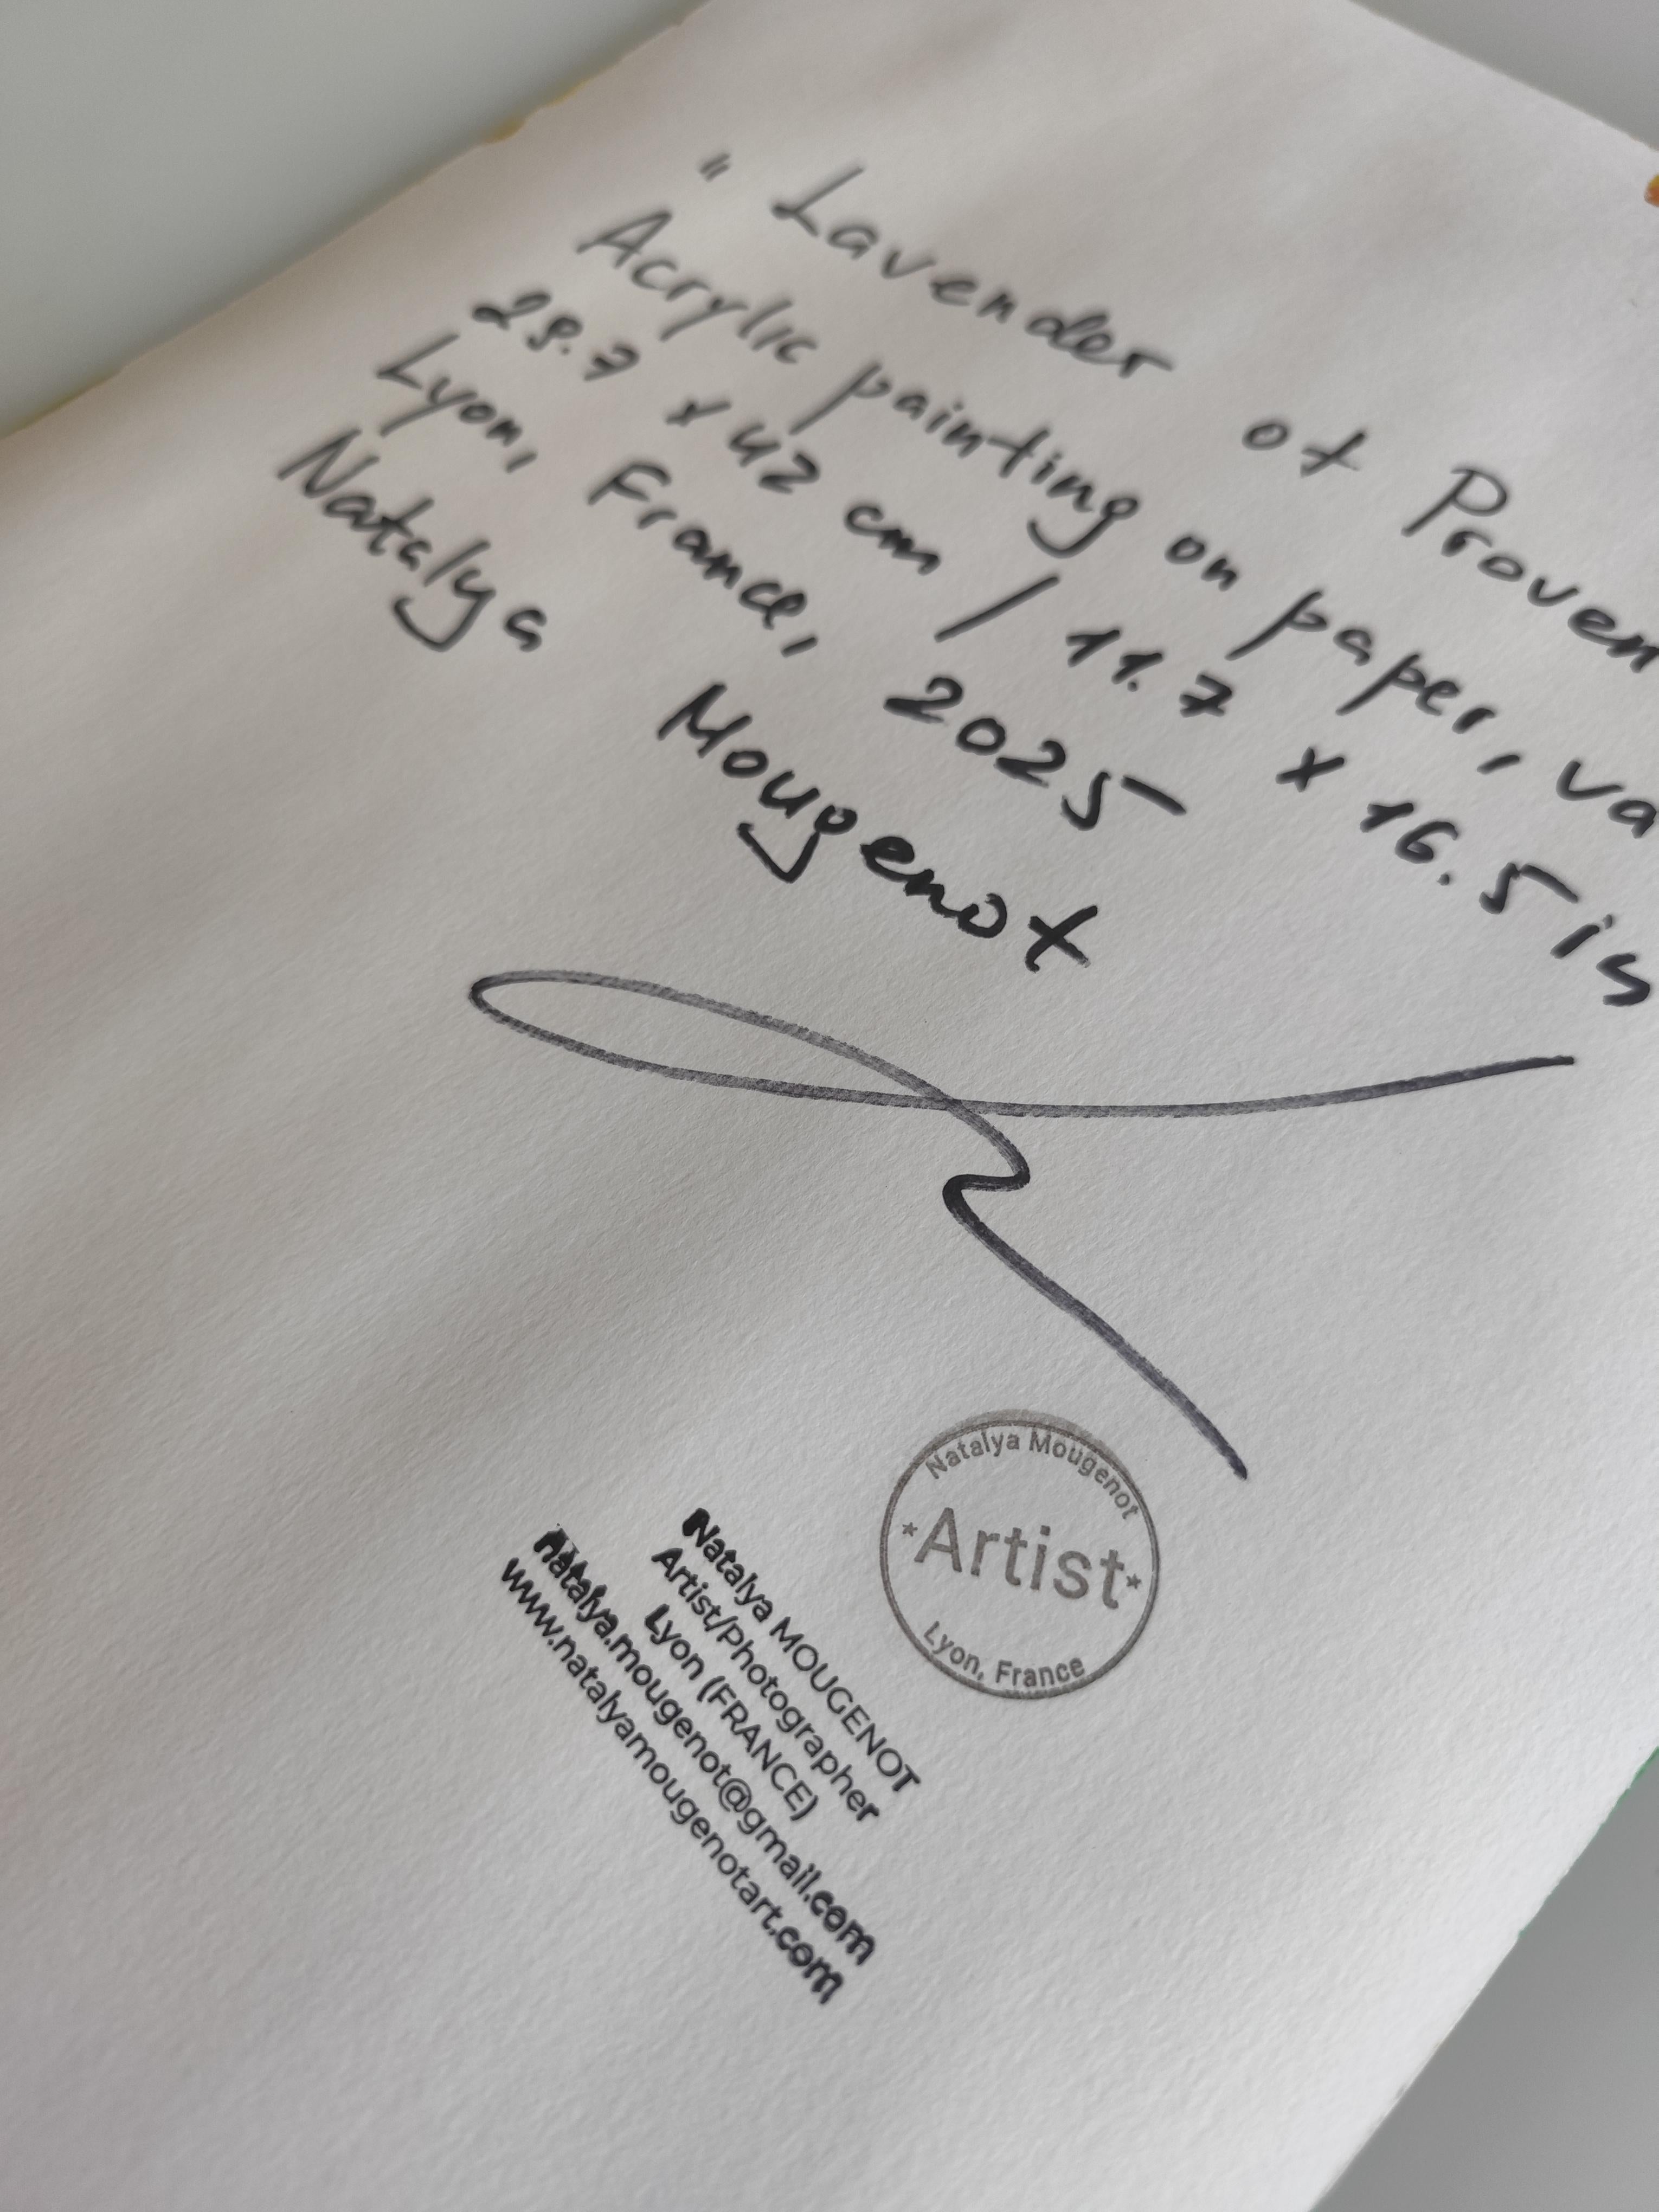 " Lavender of Proven
Acrylic painting on paper, va
29.7 x 42 cm / 11.7 x 16.5 in
Lyon, France, 2025
Natalya Mougenot
Natalya Mougenot
*Artist*
Lyon, France
Natalya MOUGENOT
Artist/Photographer
Lyon (FRANCE)
natalya.mougenot@gmail.com
www.natalyamougenotart.com